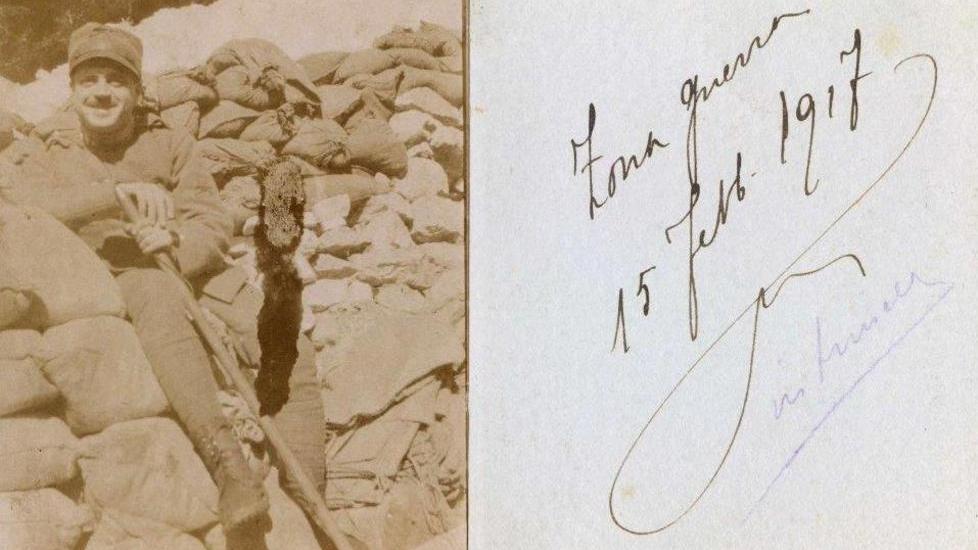 Zona guerra
15 febb. 1917
in trincea